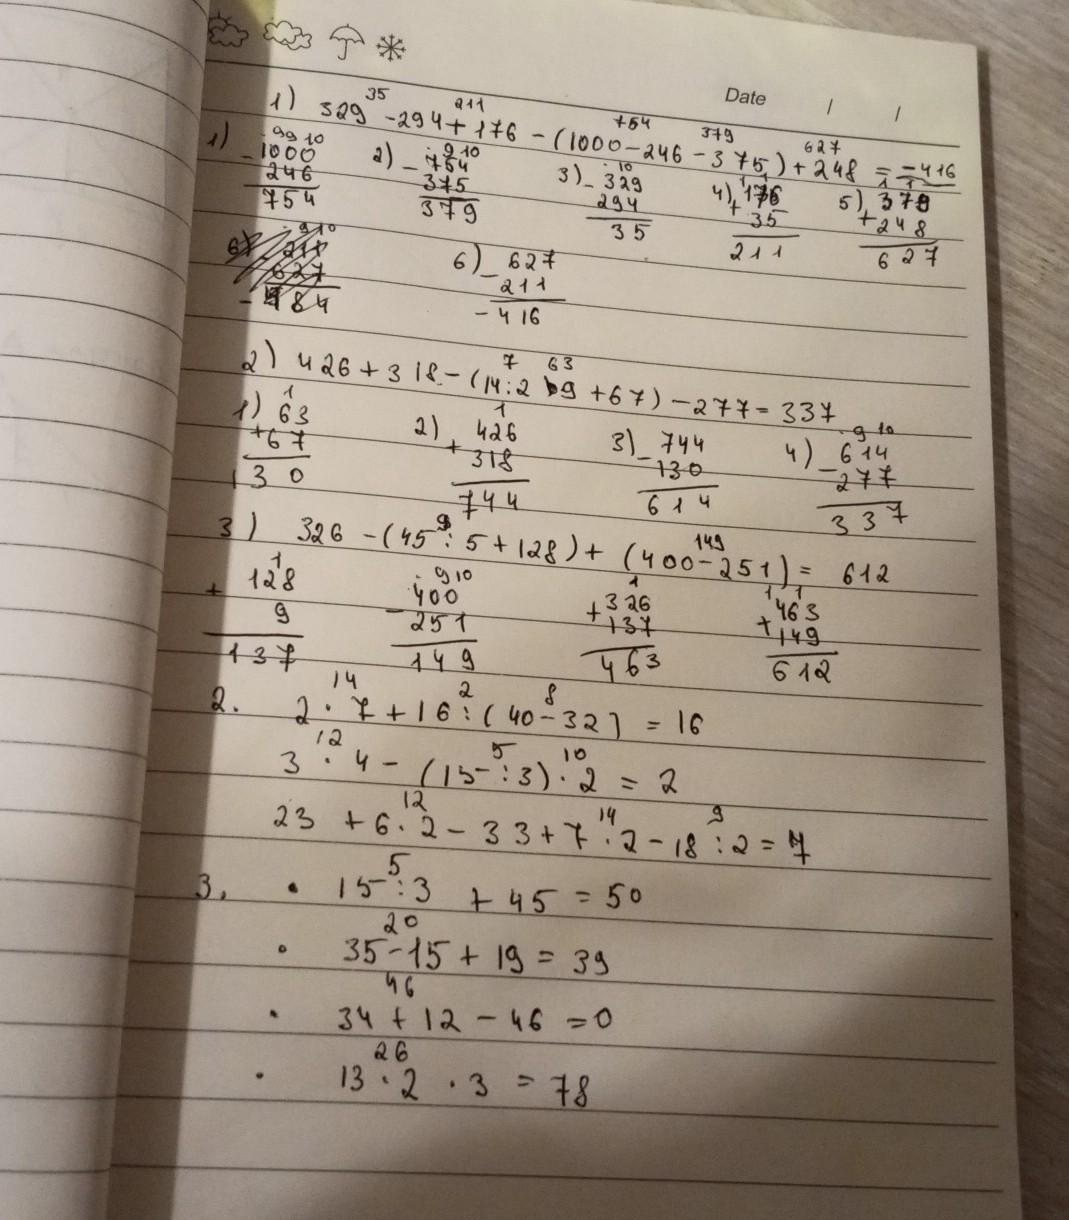 Date / /
35 211 754 379 627
1) 329 - 294 + 176 - (1000 - 246 - 375) + 248 = -416
9 9 10 9 10 10 1 1 1 1
1) - 1000 2) - 754 3) - 329 4) + 176 5) + 379
246 375 294 35 248
754 379 35 211 627
9 10
6) - 211 6) - 627
627 211
- 184 - 416
7 63
2) 426 + 318 - (14 : 2 · 9 + 67) - 277 = 337
1 1 9 10
1) 63 2) 426 3) - 744 4) - 614
+ 67 + 318 130 277
130 744 614 337
9 149
3) 326 - (45 : 5 + 128) + (400 - 251) = 612
1 9 10 1 1 1
+ 128 - 400 + 326 + 463
9 251 137 149
137 149 463 612
14 2 8
2. 2 · 7 + 16 : (40 - 32) = 16
12 5 10
3 · 4 - (15 : 3) · 2 = 2
12 14 9
23 + 6 · 2 - 33 + 7 · 2 - 18 : 2 = 7
5
3. • 15 : 3 + 45 = 50
20
• 35 - 15 + 19 = 39
46
• 34 + 12 - 46 = 0
26
• 13 · 2 · 3 = 78